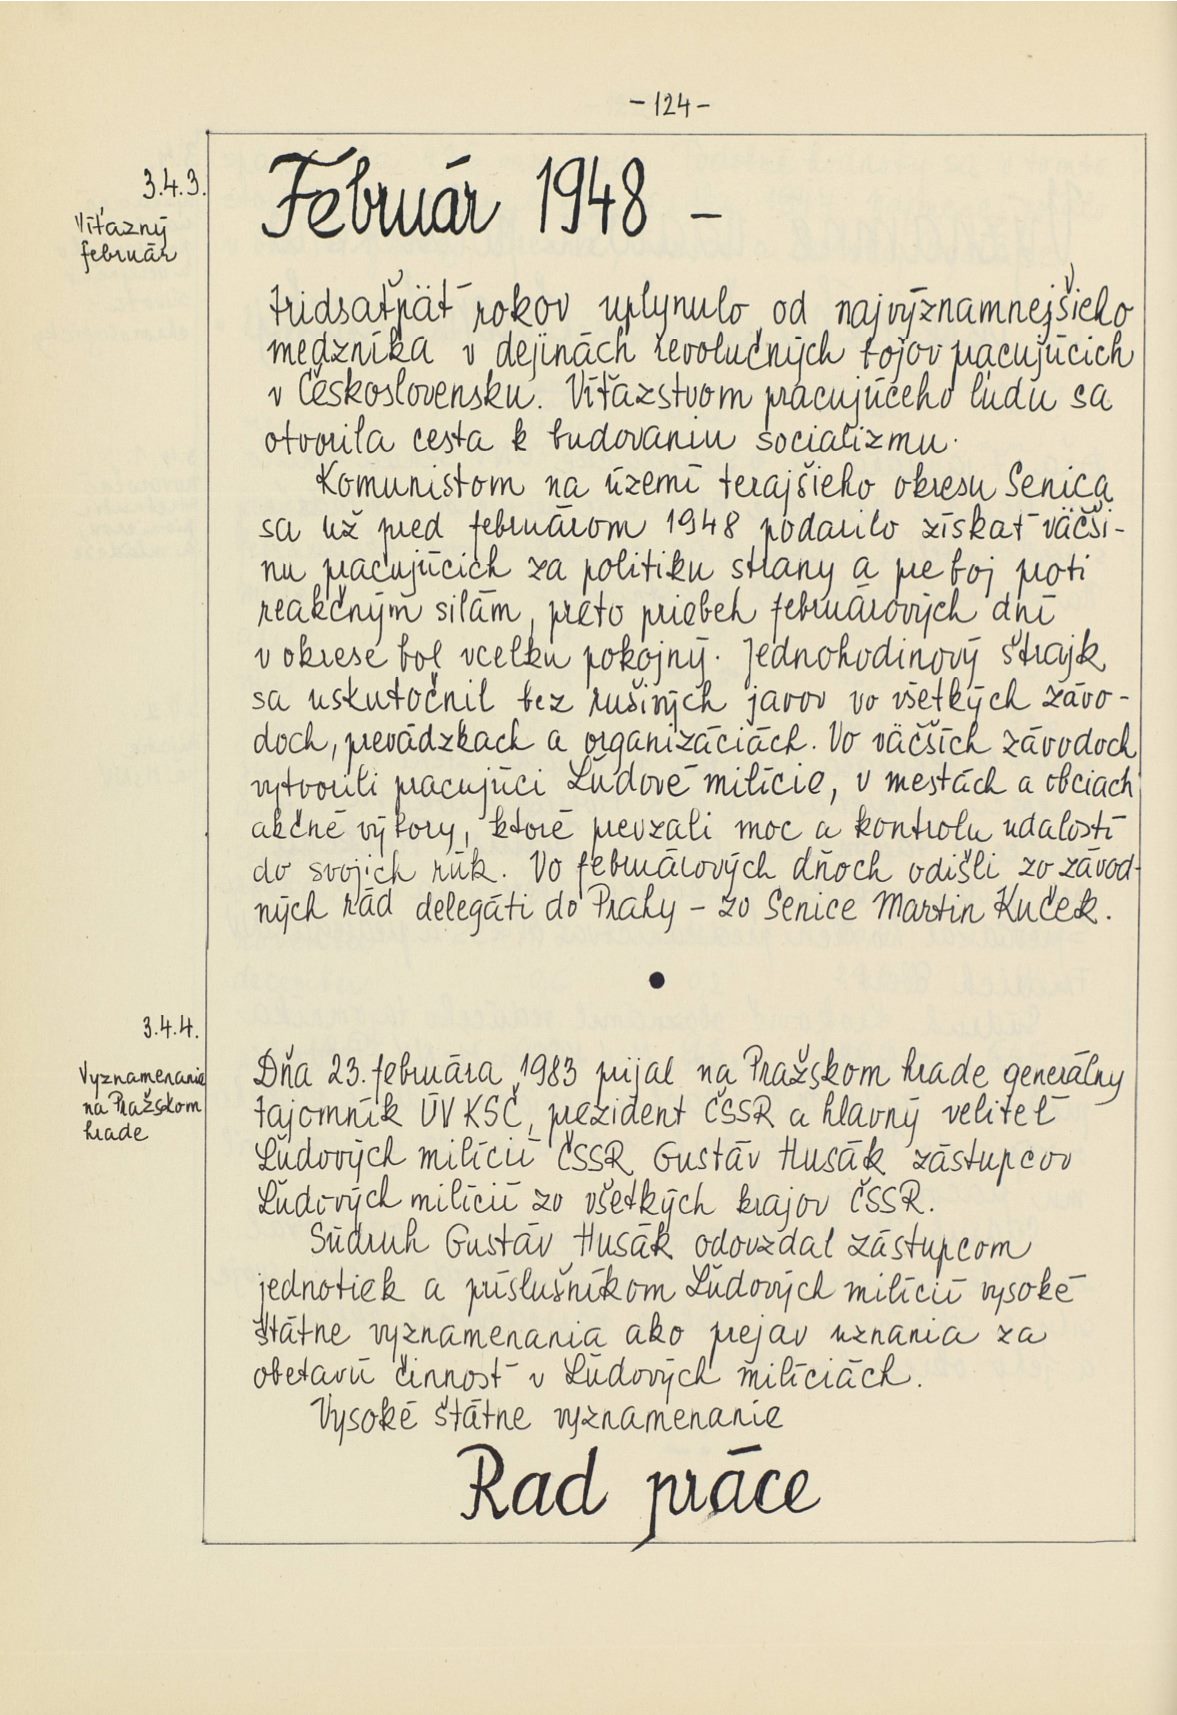 - 124 -
3.4.3.
Víťazný
február
Február 1948 -
tridsaťpäť rokov uplynulo od najvýznamnejšieho
medzníka v dejinách revolučných bojov pracujúcich
v Československu. Víťazstvom pracujúceho ľudu sa
otvorila cesta k budovaniu socializmu.
Komunistom na území terajšieho okresu Senica
sa už pred februárom 1948 podarilo získať väčši-
nu pracujúcich za politiku strany a pre boj proti
reakčným silám, preto priebeh februárových dní
v okrese bol vcelku pokojný. Jednohodinový štrajk
sa uskutočnil bez rušivých javov vo všetkých závo-
doch, prevádzkach a organizáciách. Vo väčších závodoch
vytvorili pracujúci Ľudové milície, v mestách a obciach
akčné výbory, ktoré prevzali moc a kontrolu udalostí
do svojich rúk. Vo februárových dňoch odišli zo závod-
ných rád delegáti do Prahy - zo Senice Martin Kuček.
3.4.4.
Vyznamenanie
na Pražskom
hrade
Dňa 23. februára 1983 prijal na Pražskom hrade generálny
tajomník ÚV KSČ, prezident ČSSR a hlavný veliteľ
Ľudových milícií ČSSR Gustáv Husák zástupcov
Ľudových milícií zo všetkých krajov ČSSR.
Súdruh Gustáv Husák odovzdal zástupcom
jednotiek a príslušníkom Ľudových milícií vysoké
štátne vyznamenania ako prejav uznania za
obetavú činnosť v Ľudových milíciách.
Vysoké štátne vyznamenanie
Rad práce